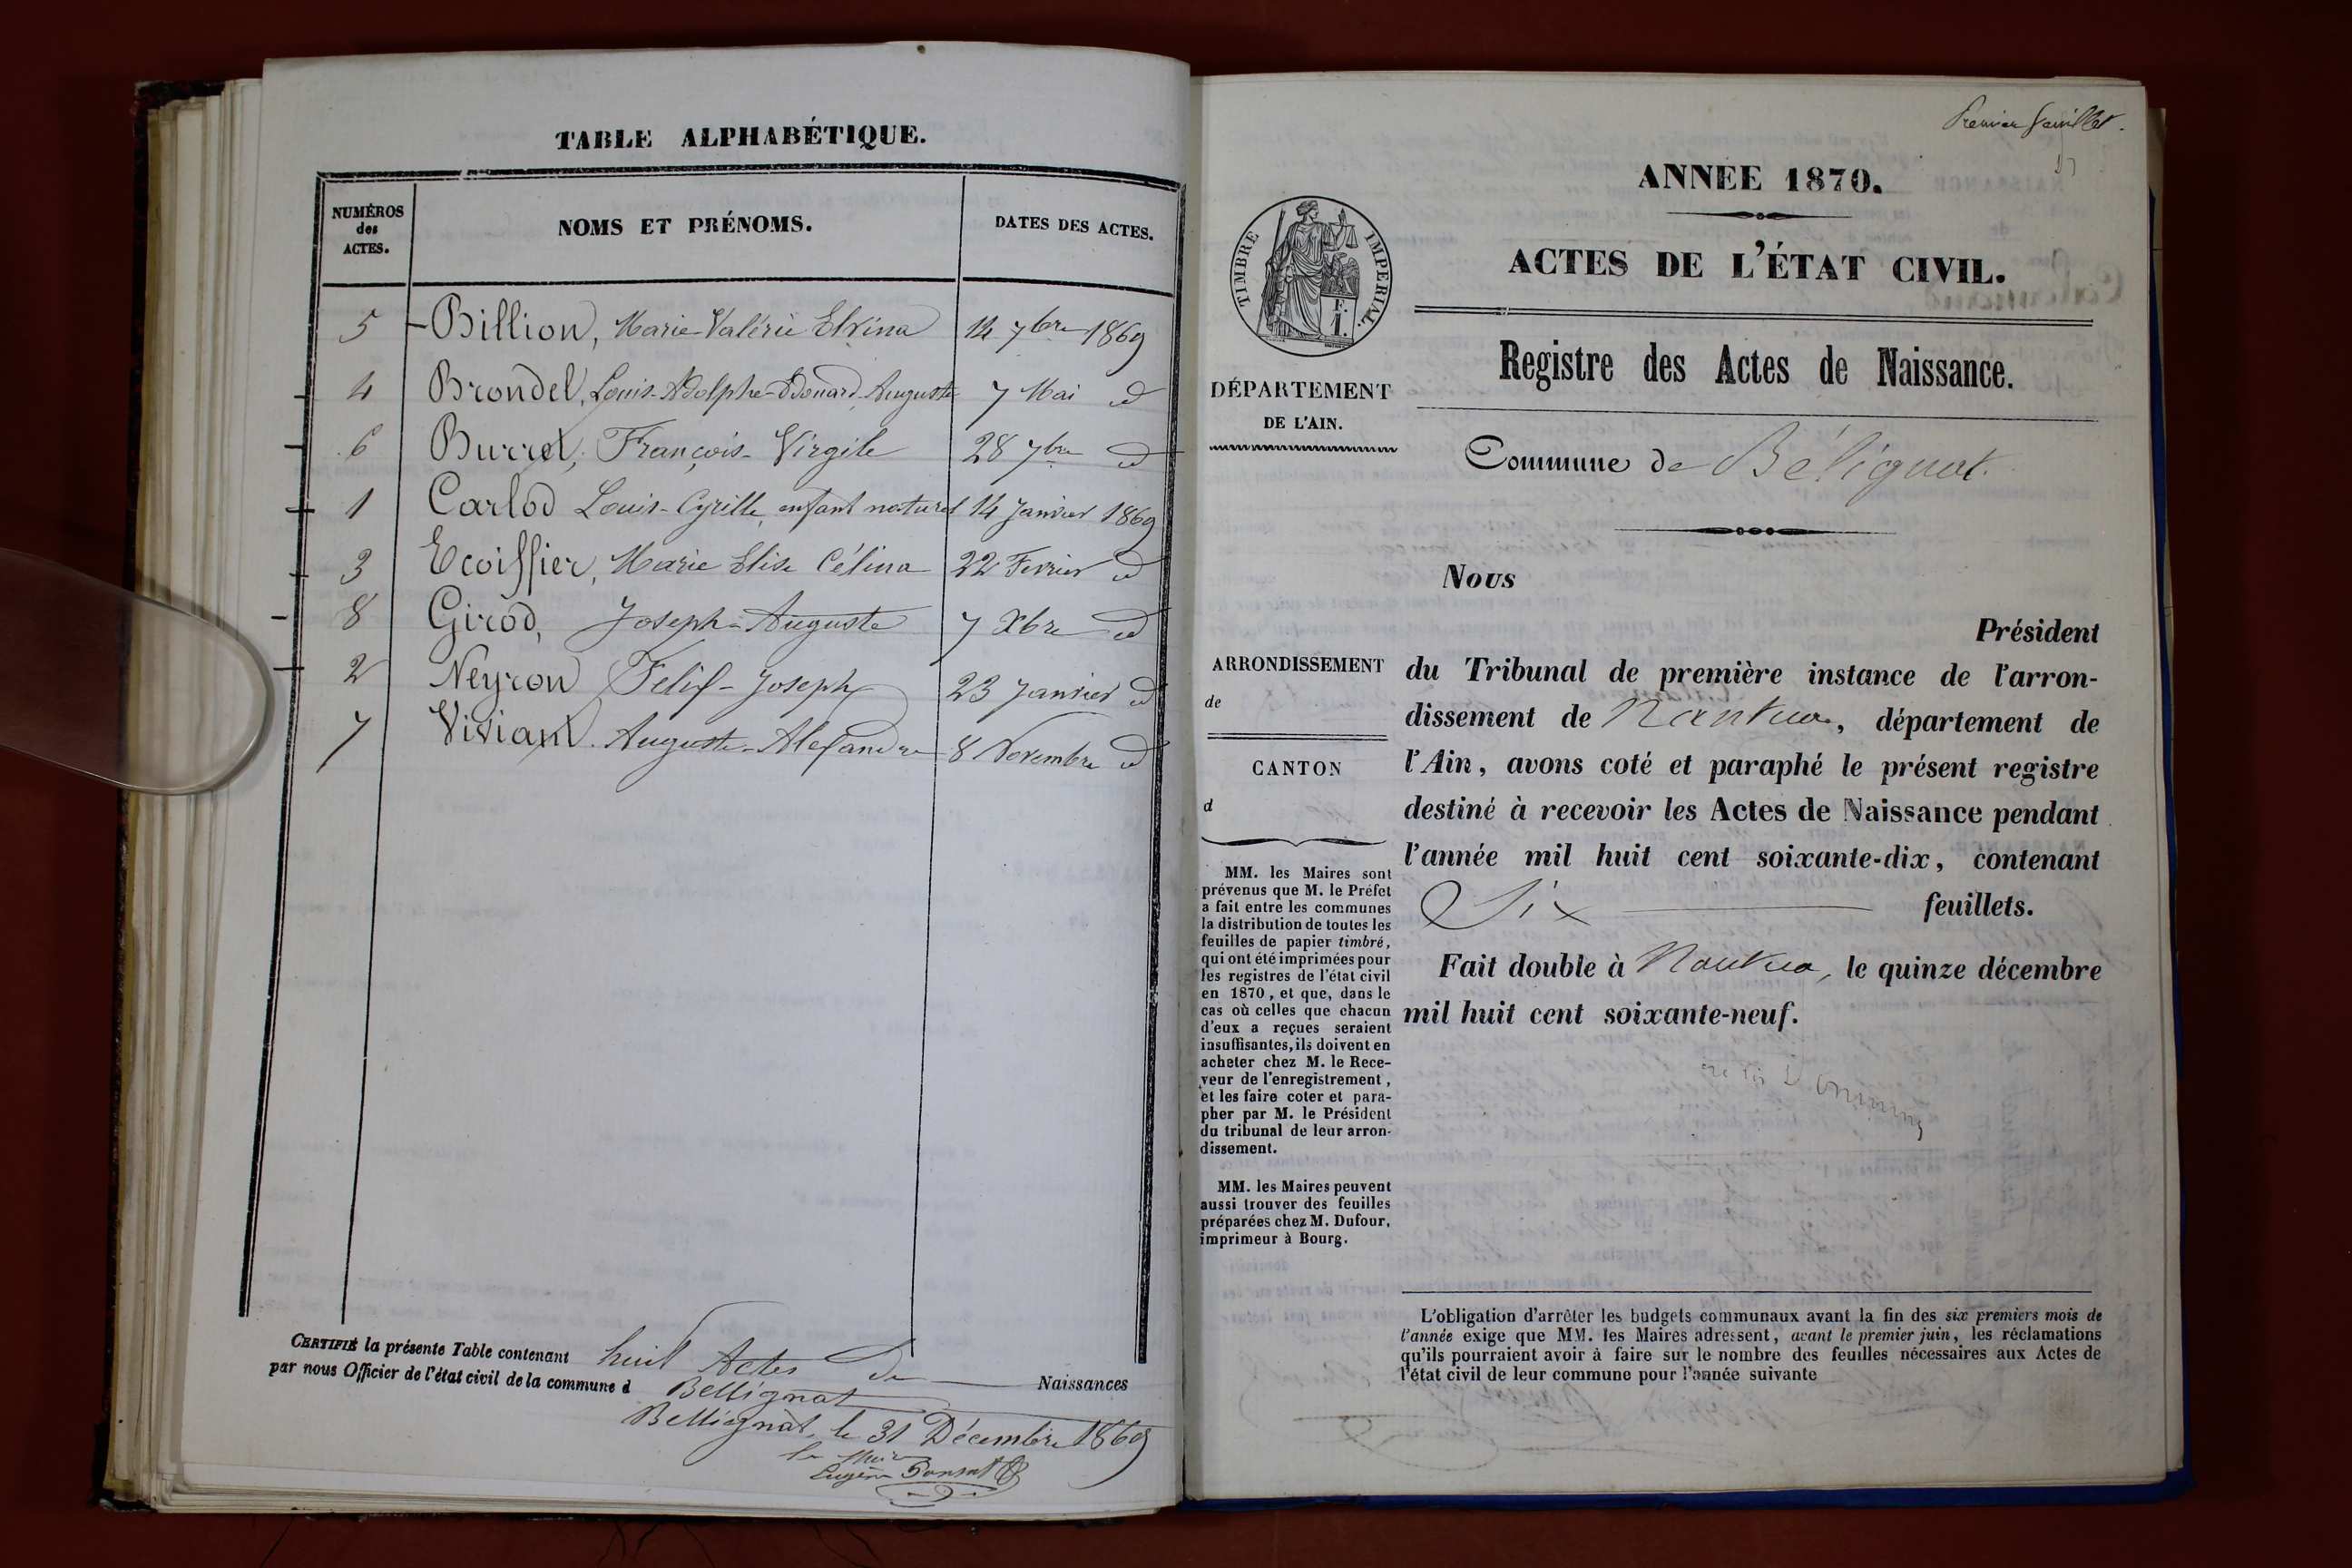 TABLE ALPHABÉTIQUE.
NUMÉROS des ACTES.
NOMS ET PRÉNOMS.
DATES DES ACTES.
5 Billion, Marie-Valérie Elvina 14 7bre 1869
4 Brondel, Louis-Adolphe-Edouard-Auguste 7 Mai id
6 Burret, François-Virgile 28 7bre id
1 Carlod Louis-Cyrille, enfant naturel 14 Janvier 1869
3 Ecoiffier, Marie Elise Célina 22 Fevrier id
8 Girod, Joseph-Auguste 7 Xbre id
2 Neyron Felix-Joseph 23 Janvier id
7 Vivian Auguste-Alexandre 8 Novembre id
CERTIFIÉ la présente Table contenant huit Actes de Naissances
par nous Officier de l'état civil de la commune d Bellignat
Bellignat, le 31 Décembre 1869
le Maire
Eugène
Premier feuillet.
ANNÉE 1870.
ACTES DE L'ÉTAT CIVIL.
Registre des Actes de Naissance.
TIMBRE IMPÉRIAL.
DÉPARTEMENT
DE L'AIN.
Commune de Bélignat.
Nous
Président
du Tribunal de première instance de l'arron-
dissement de Nantua, département de
l'Ain, avons coté et paraphé le présent registre
destiné à recevoir les Actes de Naissance pendant
l'année mil huit cent soixante-dix, contenant
Six feuillets.
Fait double à Nantua, le quinze décembre
mil huit cent soixante-neuf.
ARRONDISSEMENT
de
CANTON
d
MM. les Maires sont
prévenus que M. le Préfet
a fait entre les communes
la distribution de toutes les
feuilles de papier timbré,
qui ont été imprimées pour
les registres de l'état civil
en 1870, et que, dans le
cas où celles que chacun
d'eux a reçues seraient
insuffisantes, ils doivent en
acheter chez M. le Rece-
veur de l'enregistrement,
et les faire coter et para-
pher par M. le Président
du tribunal de leur arron-
dissement.
MM. les Maires peuvent
aussi trouver des feuilles
préparées chez M. Dufour,
imprimeur à Bourg.
L'obligation d'arrêter les budgets communaux avant la fin des six premiers mois de
l'année exige que MM. les Maires adressent, avant le premier juin, les réclamations
qu'ils pourraient avoir à faire sur le nombre des feuilles nécessaires aux Actes de
l'état civil de leur commune pour l'année suivante